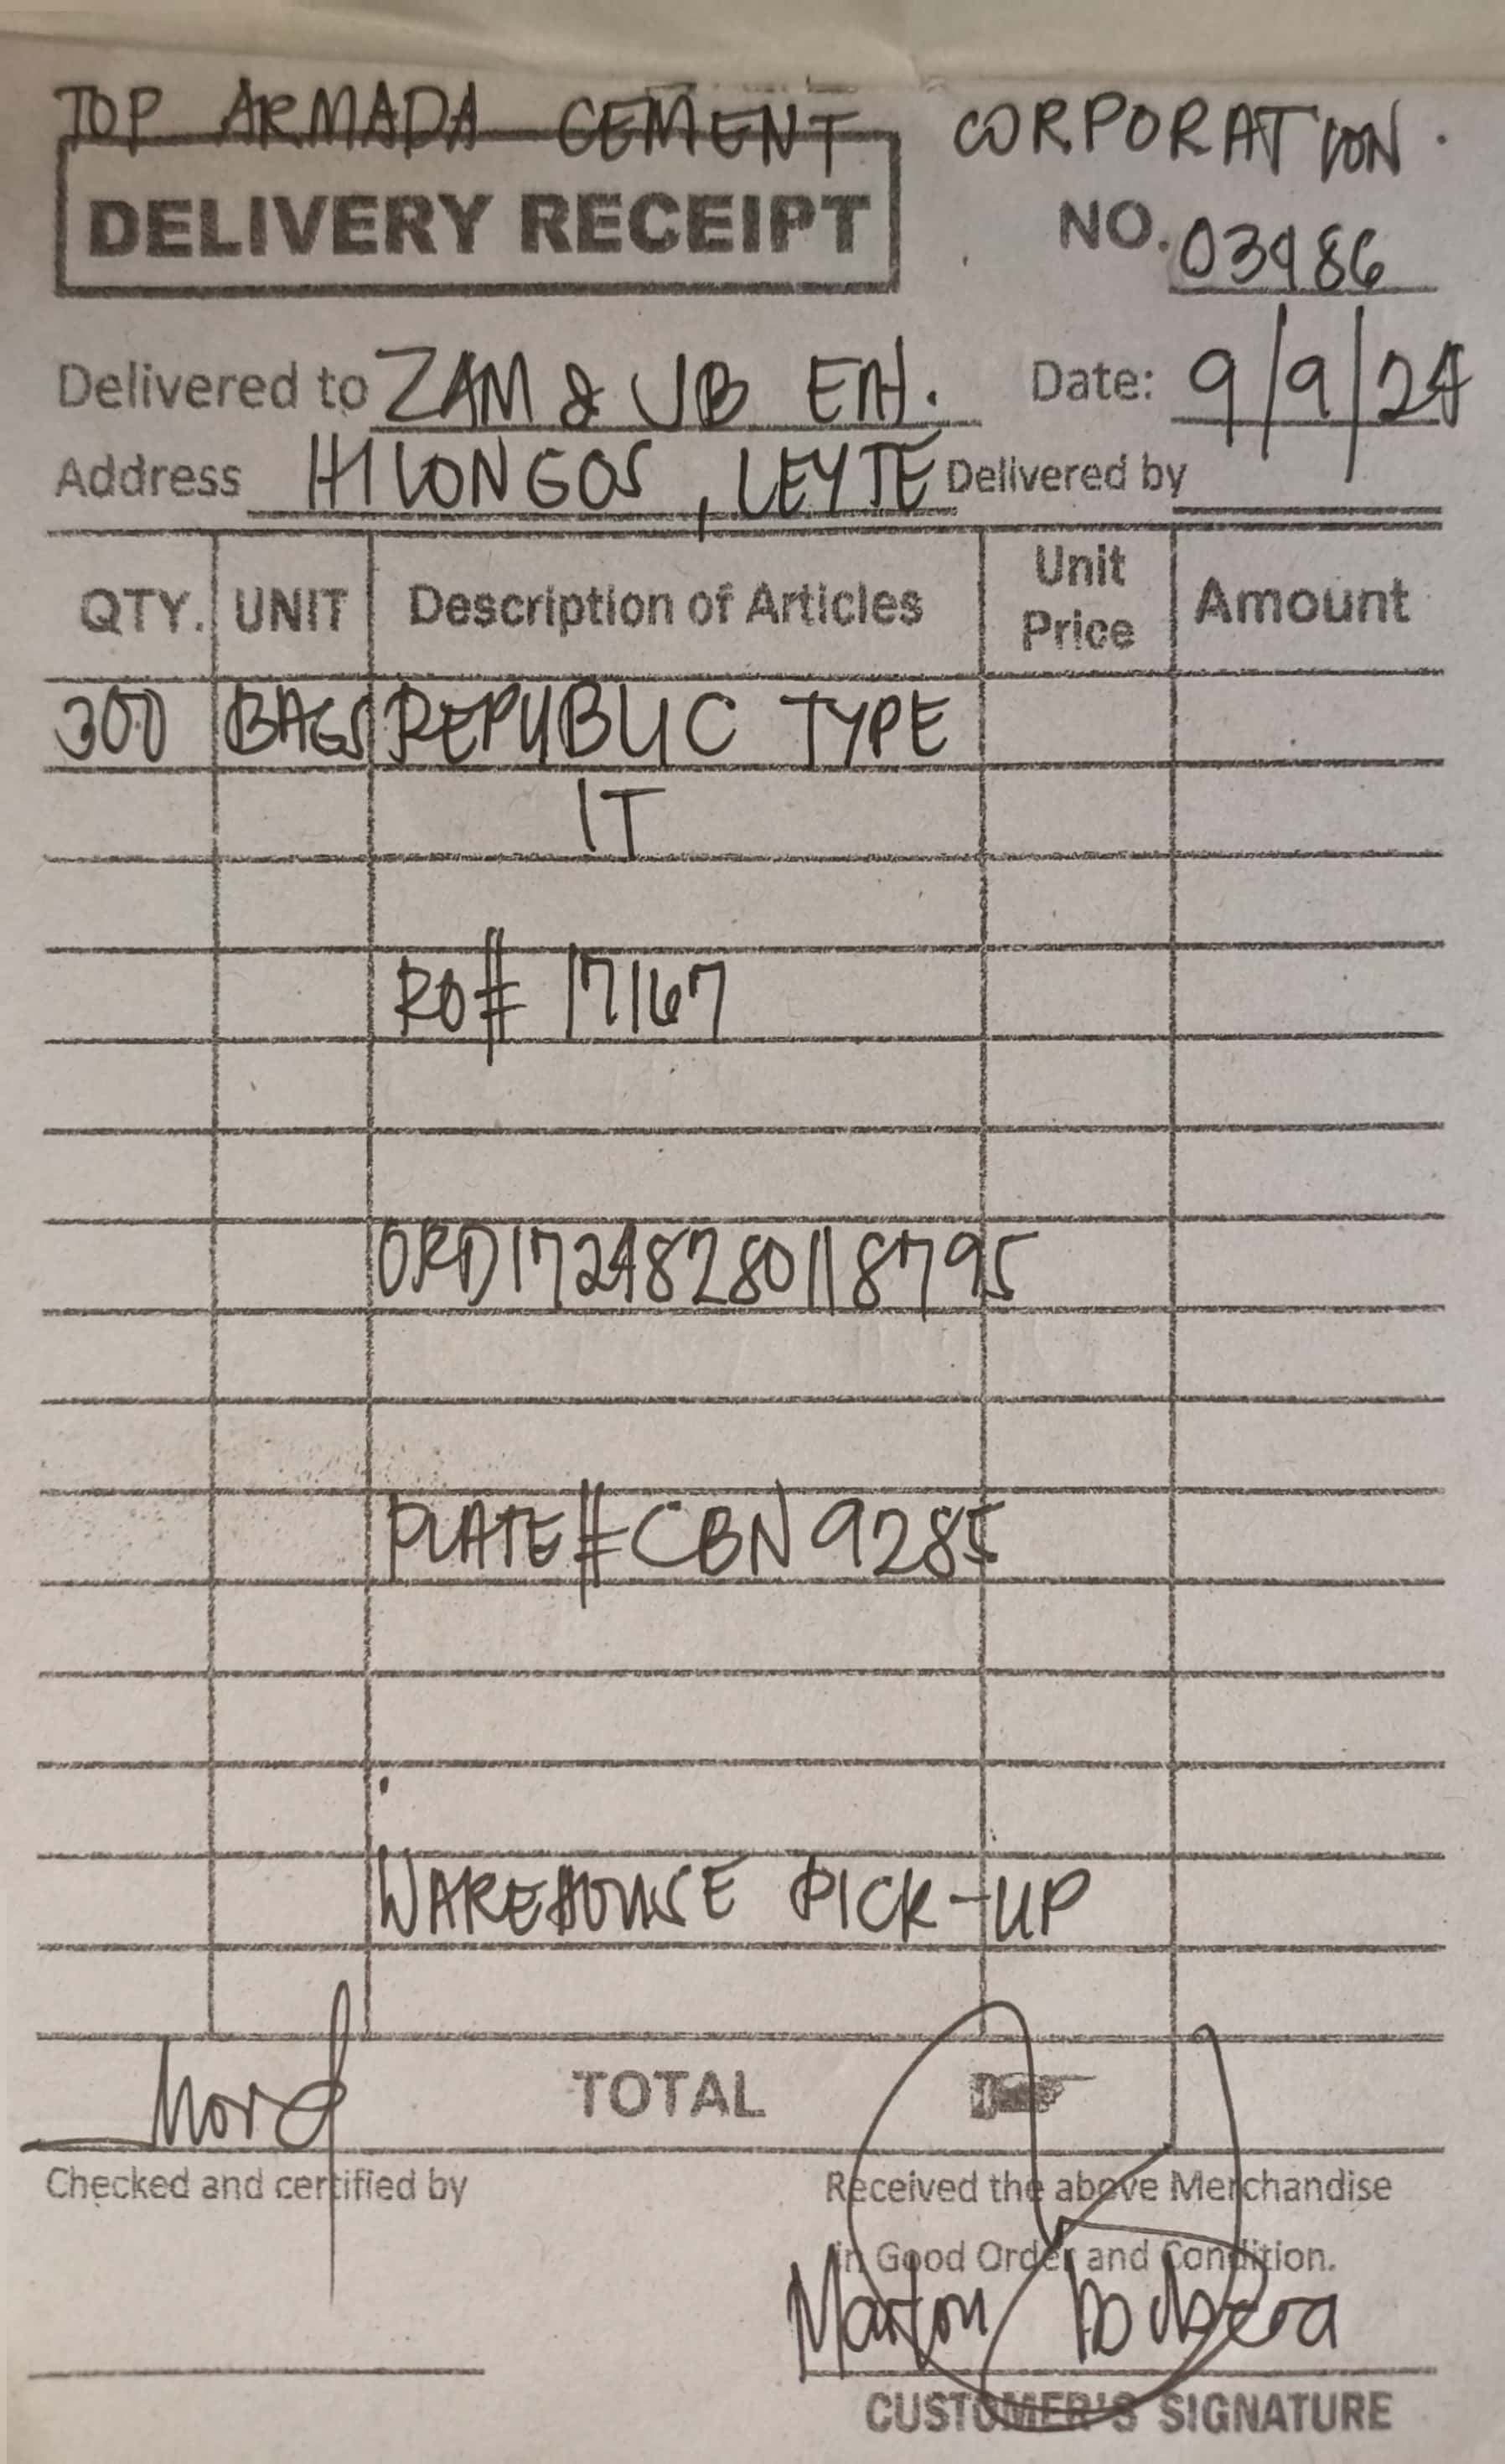 TOP ARMADA CEMENT CORPORATION.
DELIVERY RECEIPT
NO. 03986
Delivered to ZAM & JB ENT. Date: 9/9/24
Address HILONGOS, LEYTE Delivered by
QTY. UNIT Description of Articles Unit Price Amount
300 BAGS REPUBLIC TYPE
1T
RO# 17167
ORD17248280118795
PLATE# CBN 9285
WAREHOUSE PICK-UP
TOTAL
Checked and certified by
Received the above Merchandise
in Good Order and Condition.
CUSTOMER'S SIGNATURE